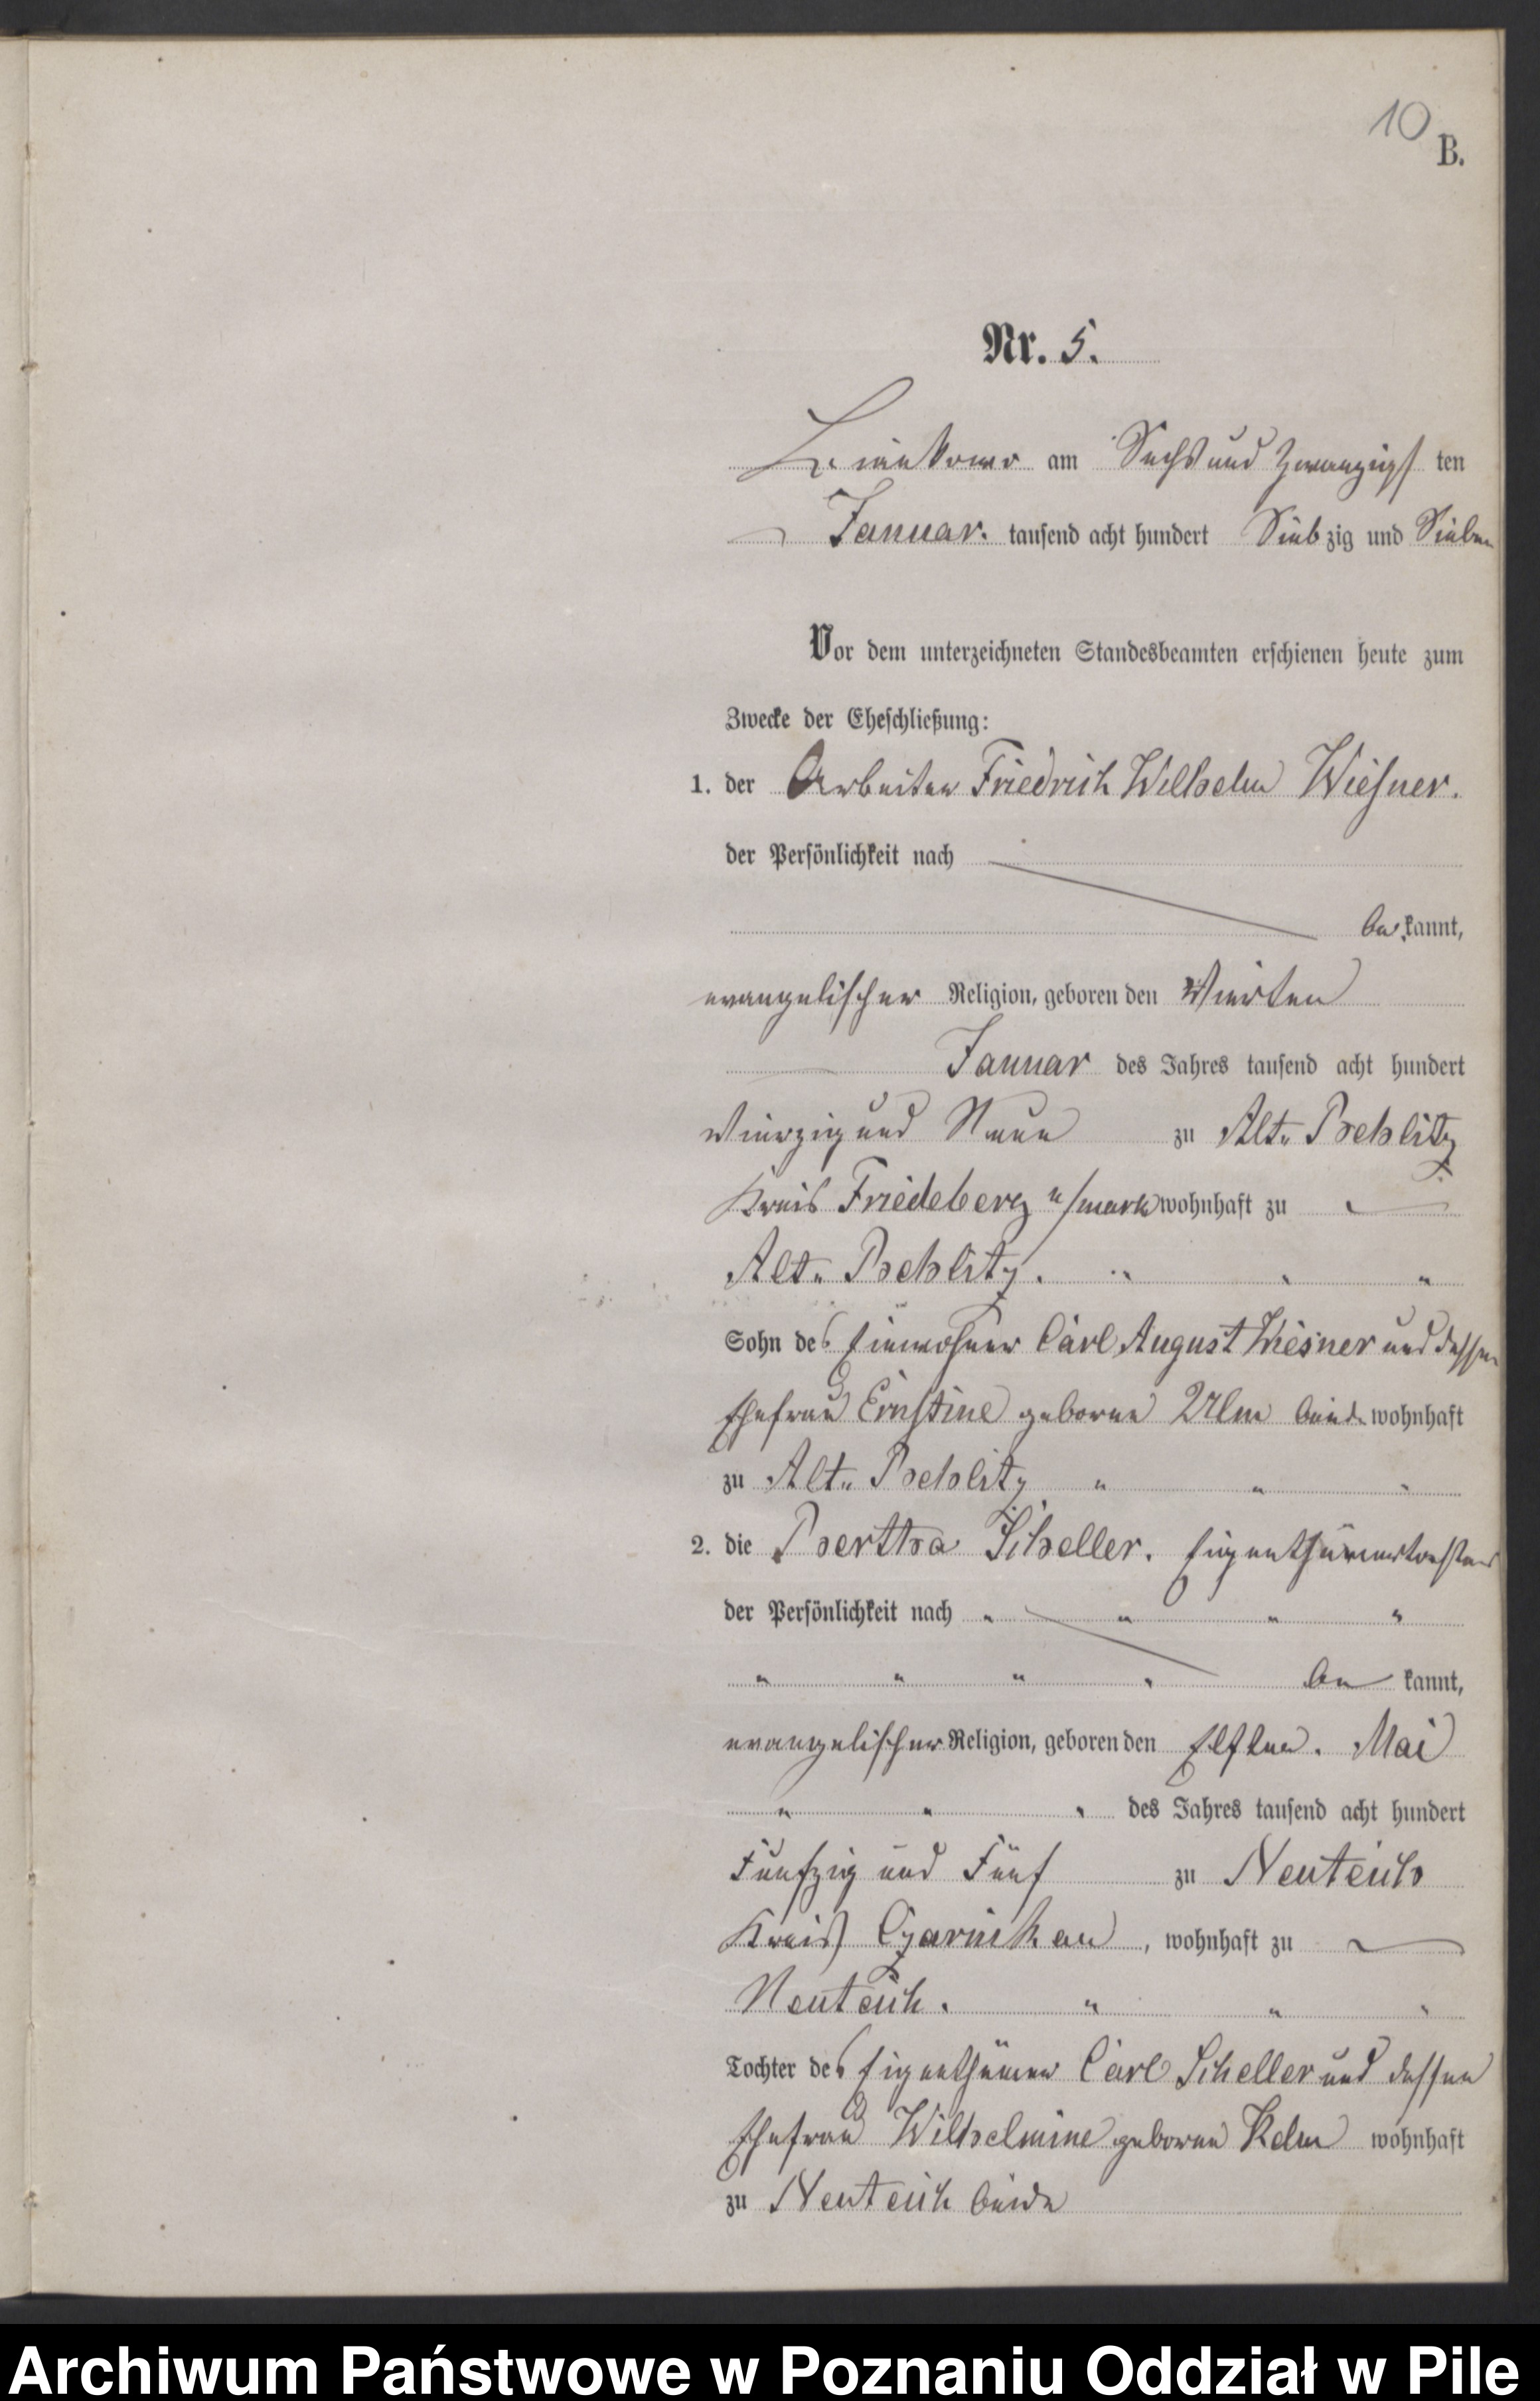 10
B.
Nr. 5.
am Sechs und Zwanzigs ten
Januar. tausend acht hundert Siebzig und Sieben
Vor dem unterzeichneten Standesbeamten erschienen heute zum
Zwecke der Eheschließung:
1. der Arbeiter Friedrich Wilhelm Wiesner.
der Persönlichkeit nach
be kannt,
evangelischer Religion, geboren den Vierten
Januar des Jahres tausend acht hundert
Vierzig und Neun zu Alt-Beelitz
Kreis Friedeberg n/mark wohnhaft zu
Alt-Beelitz. " " "
Sohn des Einwohner Carl August Wiesner und dessen
Ehefrau Ernstine geborne Ulm beide wohnhaft
zu Alt-Beelitz " " "
2. die Bertha Scheller. Eigenthümertochter
der Persönlichkeit nach " " " "
" " " " be kannt,
evangelischer Religion, geboren den Elften. Mai
" " " des Jahres tausend acht hundert
Fünfzig und Fünf zu Neuteich
Kreis Czarnikau, wohnhaft zu
Neuteich. " " "
Tochter des Eigenthümer Carl Scheller und dessen
Ehefrau Wilhelmine geborne Kelm wohnhaft
zu Neuteich beide
Archiwum Państwowe w Poznaniu Oddział w Pile